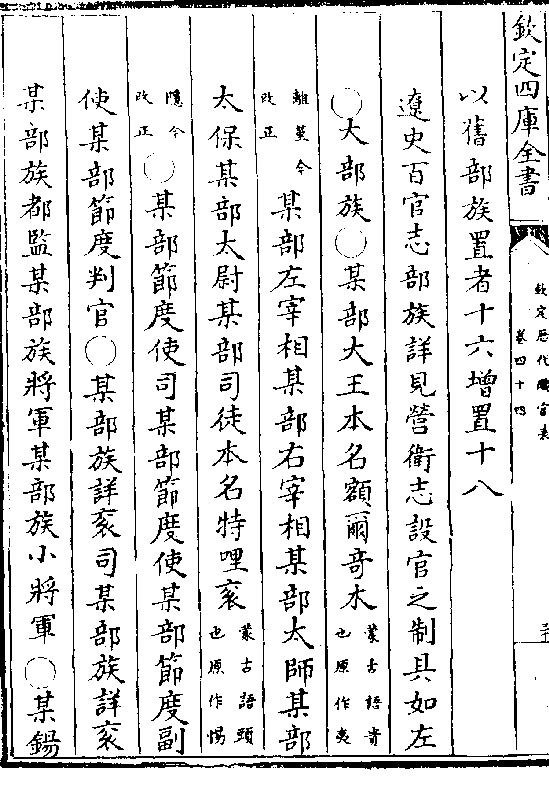 欽定四庫全書
欽定歷代職官表
卷四十四
以舊部族置者十六增置十八
遼史百官志部族詳見營衛志設官之制具如左
○大部族○某部大王本名額爾奇木蒙古語貴也原作夷
離堇今改正某部左宰相某部右宰相某部太師某部
太保某部太尉某部司徒本名特哩衮蒙古語頭也原作惕
隱今改正○某部節度使司某部節度使某部節度副
使某部節度判官○某部族詳衮司某部族詳衮
某部族都監某部族將軍某部族小將軍○某錫